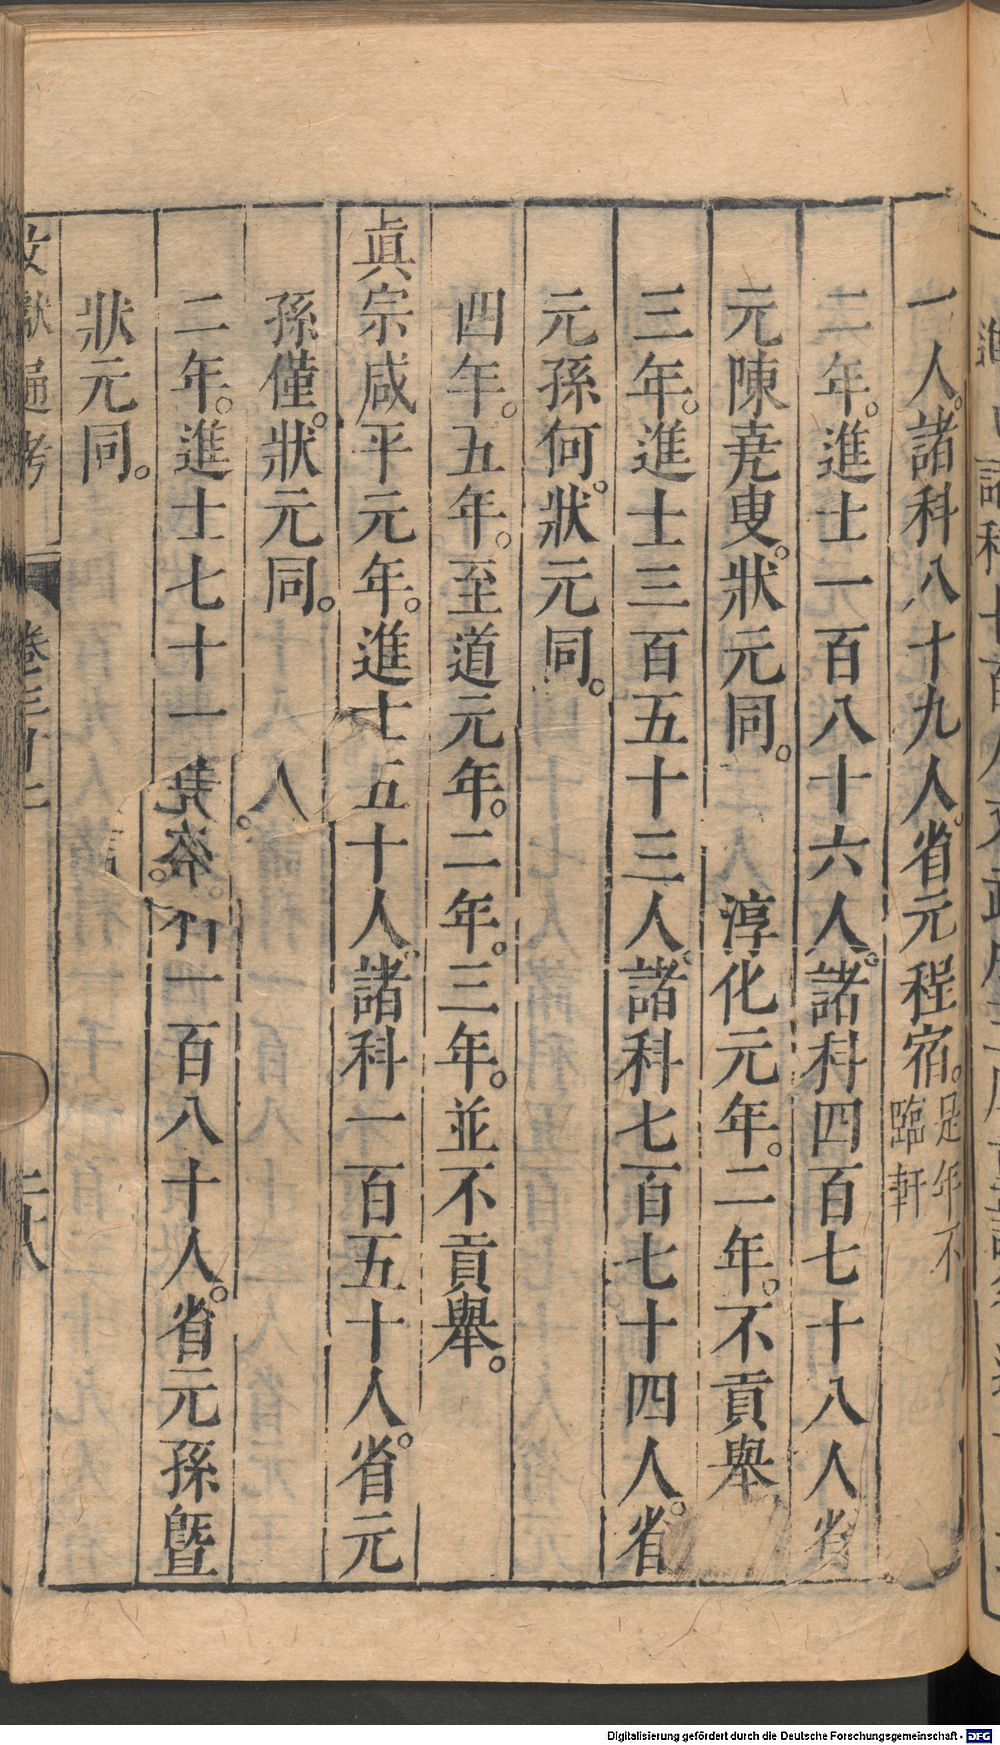 一人。諸科八十九人。省元程宿。是年不臨軒
二年。進士一百八十六人。諸科四百七十八人省
元陳堯叟。狀元同。 淳化元年。二年。不貢舉
三年。進士三百五十三人。諸科七百七十四人。省
元孫何。狀元同。
四年。五年。至道元年。二年。三年。並不貢舉。
眞宗咸平元年。進士五十人。諸科一百五十人。省元
孫僅。狀元同。
二年。進士七十一 一百八十人。省元孫曁
狀元同。
文獻通考 卷三十二 二十八
Digitalisierung gefördert durch die Deutsche Forschungsgemeinschaft - DFG